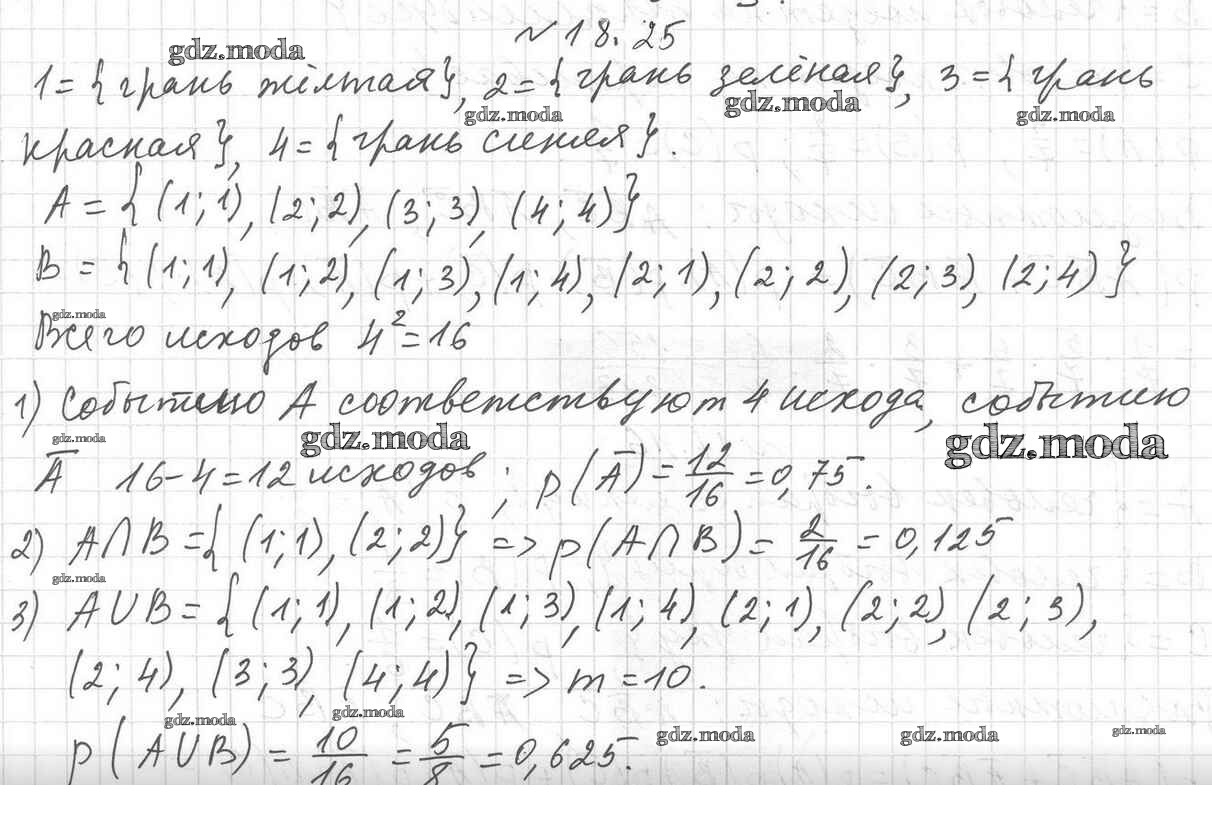 №18.25
1={грань жёлтая}, 2={грань зелёная}, 3={грань
красная}, 4={грань синяя}.
A={(1;1), (2;2), (3;3), (4;4)}
B={(1;1), (1;2), (1;3), (1;4), (2;1), (2;2), (2;3), (2;4)}
Всего исходов 4²=16
1) Событию A соответствуют 4 исхода, событию
A̅ 16-4=12 исходов; p(A̅)=12/16=0,75.
2) A∩B={(1;1), (2;2)} => p(A∩B)=2/16=0,125
3) A∪B={(1;1), (1;2), (1;3), (1;4), (2;1), (2;2), (2;3),
(2;4), (3;3), (4;4)} => m=10.
p(A∪B)=10/16=5/8=0,625.
gdz.moda
gdz.moda
gdz.moda
gdz.moda
gdz.moda
gdz.moda
gdz.moda
gdz.moda
gdz.moda
gdz.moda
gdz.moda
gdz.moda
gdz.moda
gdz.moda